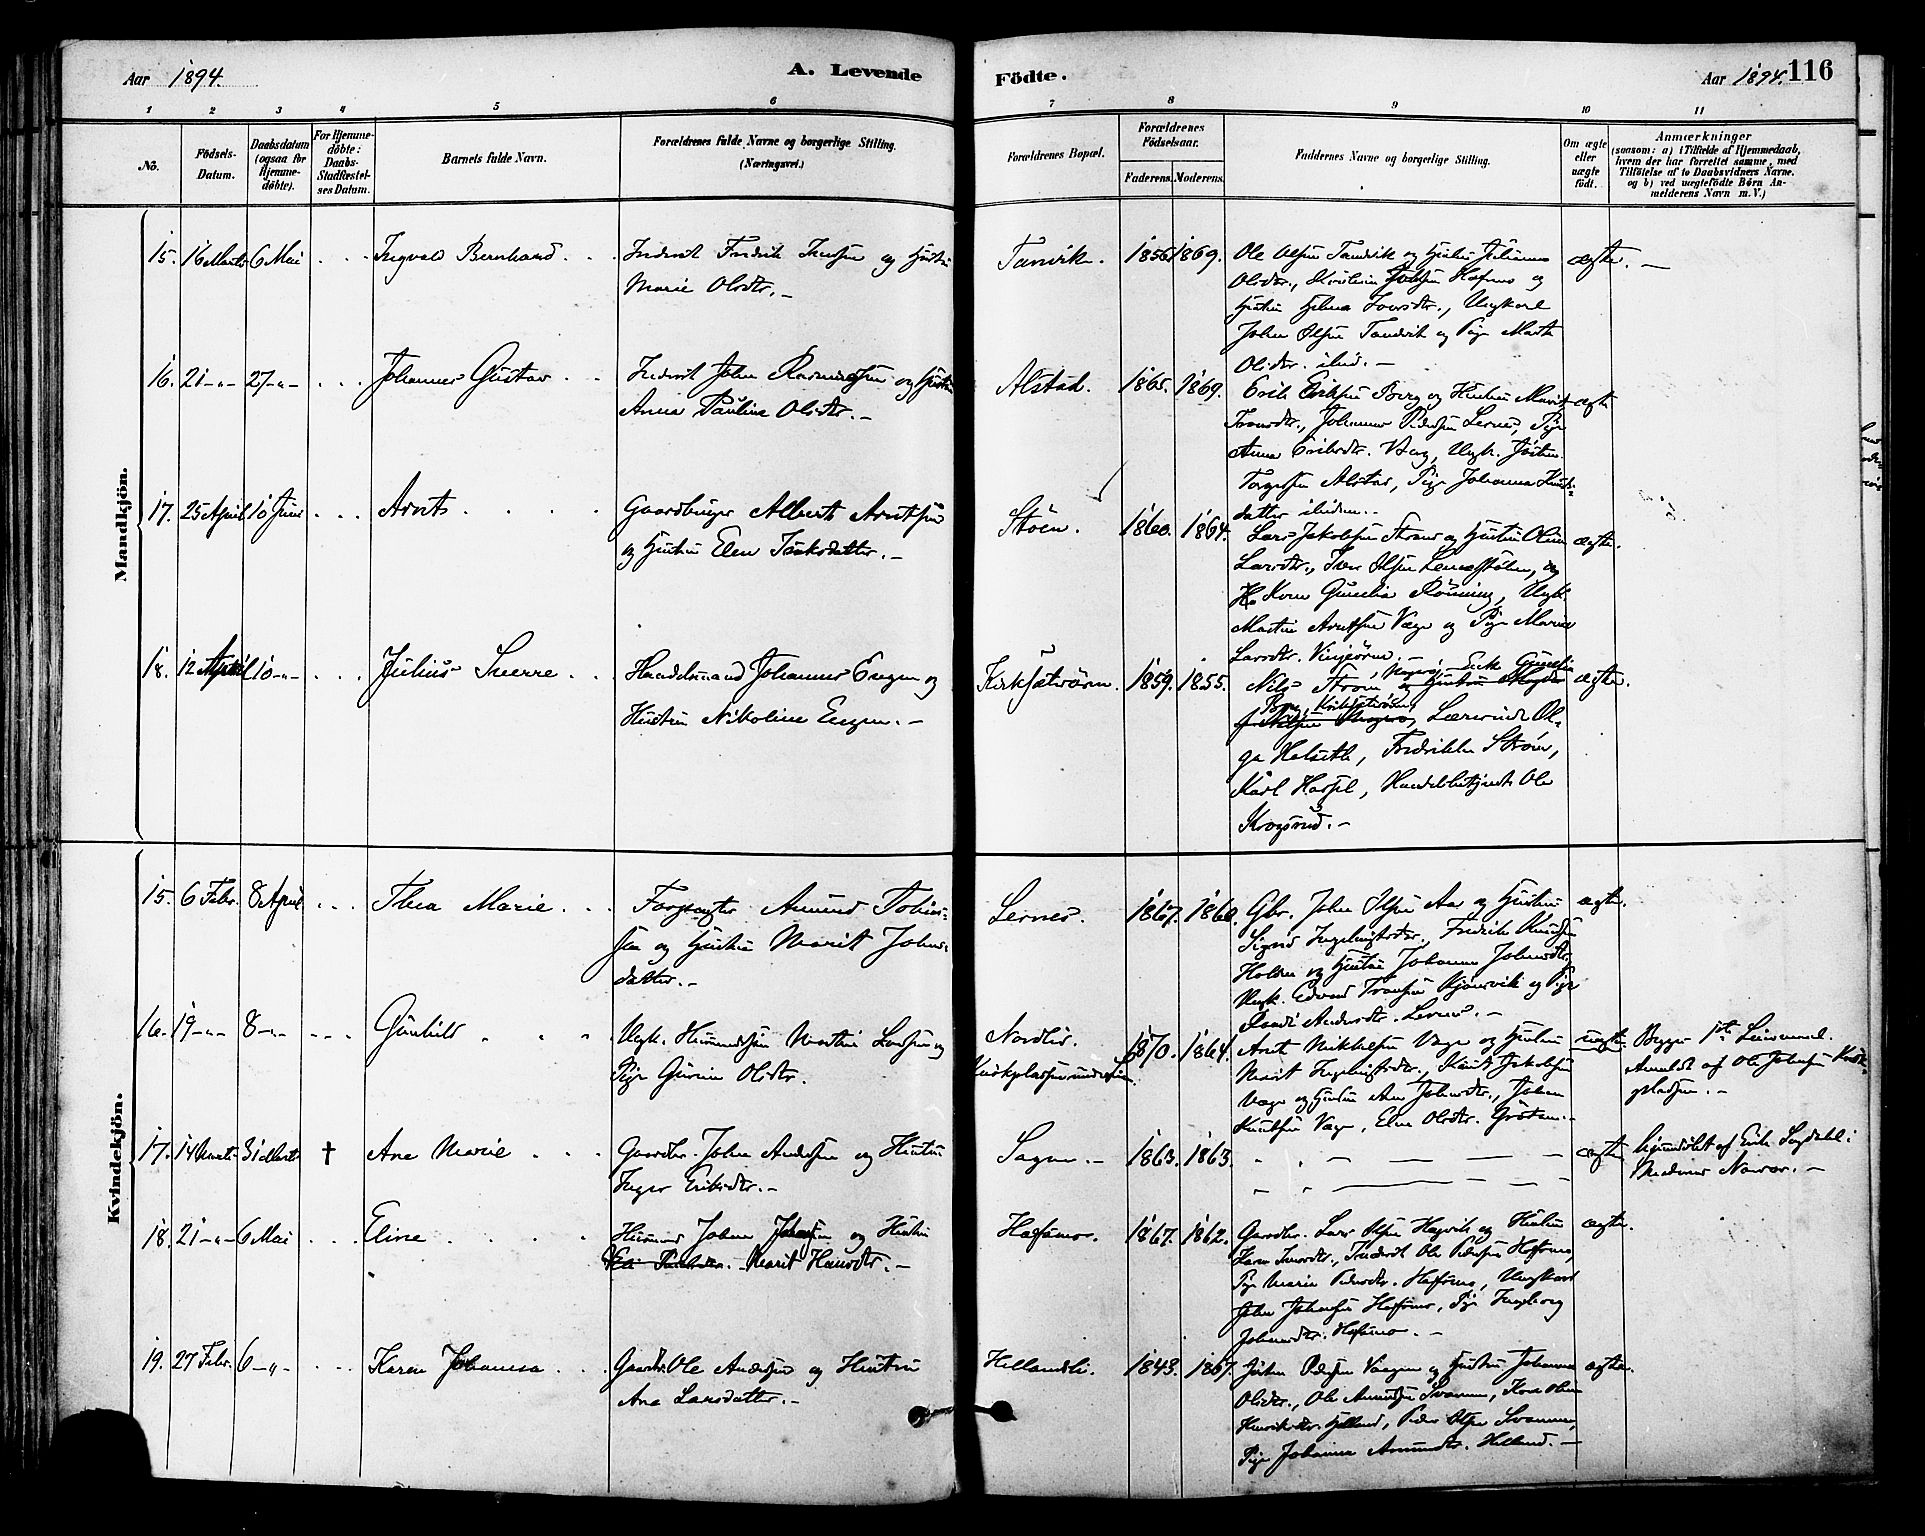 Aar 1894.
A. Levende
Födte.
Aar 1894. 116
1 2 3 4 5 6 7 8 9 10 11
No.
Födsels-Datum.
Daabsdatum (ogsaa for Hjemme-döbte).
For Hjemme-döbte: Daabs-Stadfæstel-ses Datum.
Barnets fulde Navn.
Forældrenes fulde Navne og borgerlige Stilling.
(Næringsvei.)
Forældrenes Bopæl.
Forældrenes Födselsaar.
Faderens. Moderens.
Faddernes Navne og borgerlige Stilling.
Om ægte eller uægte født.
Anmærkninger
(saasom: a) i Tilfælde af Hjemmedaab,
hvem der har forrettet samme, med
Tilföielse af to Daabsvidners Navne.
og b) ved uægtefödte Börn An-
melderens Navn m. V.)
Mandkjön.
15. 16 Marts 6 Mai Ingvald Bernhard Inderst Fredrik og Hustru
Marie Olsdtr. Tanvik. 1856 1869. ægte.
Ole Olsen Tanvik og Hustru Juliane
Olsdtr., Hafsmo og
Hustru Ungkarl
John Olsen Tanvik og Pige Marth
Olsdtr. ibid.
16. 21 27 Johannes Gustav Inderst John Rasmussen og Hustru
Anna Pauline Olsdtr. Alstad. 1865. 1869. ægte
Erik Eriksen Berg og Hustru Marit
Johannes Pedersen Lernes, Pige
Anna Eriksdtr. Berg, Ungk. Jostein
Torgersen Alstad, Pige Johanna Knuts-
datter ibidem.
17. 25 April 10 Juni Arnt Gaardbruger Albert Arntsen
og Hustru Elen Isaksdatter. Stöen. 1860. 1864. ægte.
Lars Jakobsen Strand og Hustru Oline
Larsdtr., Iver Olsen og
Kone Gunelia Rönning, Ungk.
Martin Arntsen Vage og Pige Marie
Larsdtr. Vinjeören.
18. 12 April 10 Julius Sverre Handelsmand Johannes Engen og
Hustru Nikoline Engen. Kirksæterören. 1859. 1855. ægte.
Nils Ström Enke Gunelia
Kirksæterören, Lærerinde Ol-
ga Helseth, Fredrikke Ström,
Karl Hassel, Handelsbetjent Ole
Krogsrud.
Kvindekjön.
15. 6 Febr. 8 April Thea Marie Forpagter Amund Tobias-
sen og Hustru Marit Johns-
datter. Lernes. 1867. 1860. ægte.
Gbr. John Olsen Aae og Hustru
Sigrid Ingebrigtsdtr., Fredrik Knudsen
Holden og Hustru Johanna Johnsdtr.,
Ungk. Edvard Kjönsvik og Pige
Randi Andersdtr. Lernes.
16. 19 8 Gunhild Ungk. Martin Larsen og
Pige Guruine Olsdtr. Nordlid. 1870. 1864. uægte.
Arnt Mikkelsen Vage og Hustru
Marit Ingebrigtsdtr., Knut Jakobsen
Vage og Hustru Ane Johnsdtr., John
Knutsen Vage, Elen Olsdtr.
Begges 1ste Leiermaal.
Anmeldt af Ole Johnsen Kirk-
pladsen.
17. 14 Marts 31 Marts † Ane Marie Gaardbr. John Andersen og Hustru
Inger Eriksdtr. Sagen. 1863. 1863. ægte
hjemdöbt af Erik Sagdahl:
Nævner.
18. 21 6 Mai Eline Husmand John Johnsen og Hustru
Marit Hansdtr. Hafsmo. 1867. 1862. ægte.
Gaardbr. Lars Olsen Hagvik og Hustru
Karen Inderst Ole Pedersen Hafsmo,
Pige Maria Pedersdtr. Hafsmo, Ungkarl
John Johnsen Hafsmo, Pige Ingeborg
Johnsdtr. Hafsmo.
19. 27 Febr. 6 Karen Johanna Gaardbr. Ole Andersen og Hustru
Ane Larsdatter. Hellandsli. 1843. 1867. ægte.
Jostein Vaagen og Hustru Johanna
Olsdtr., Ole Amundsen Svanem, Kone Oline
Henriksdtr. Helland, Peder Olsen Svanem,
Pige Johanna Amundsdtr. Helland.